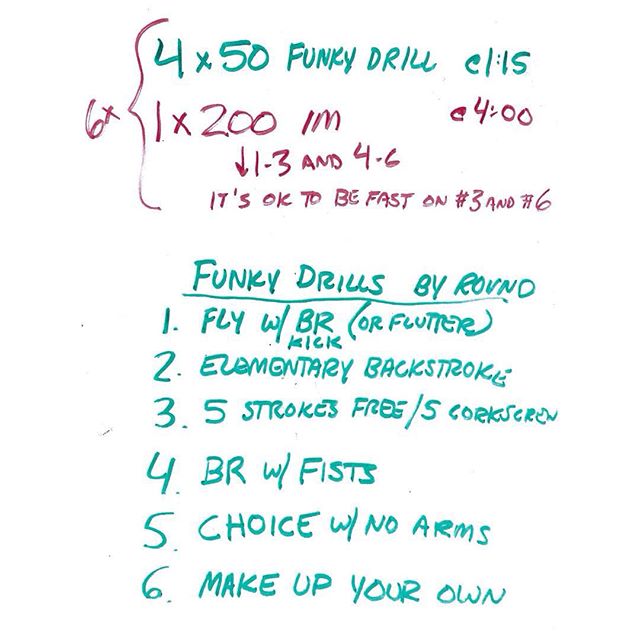 4 x 50 FUNKY DRILL @ 1:15
6x
1 x 200 IM @ 4:00
↓1-3 AND 4-6
IT'S OK TO BE FAST ON #3 AND #6
FUNKY DRILLS BY ROUND
1. FLY W/ BR (OR FLUTTER)
KICK
2. ELEMENTARY BACKSTROKE
3. 5 STROKES FREE/5 CORKSCREW
4. BR W/ FISTS
5. CHOICE W/ NO ARMS
6. MAKE UP YOUR OWN